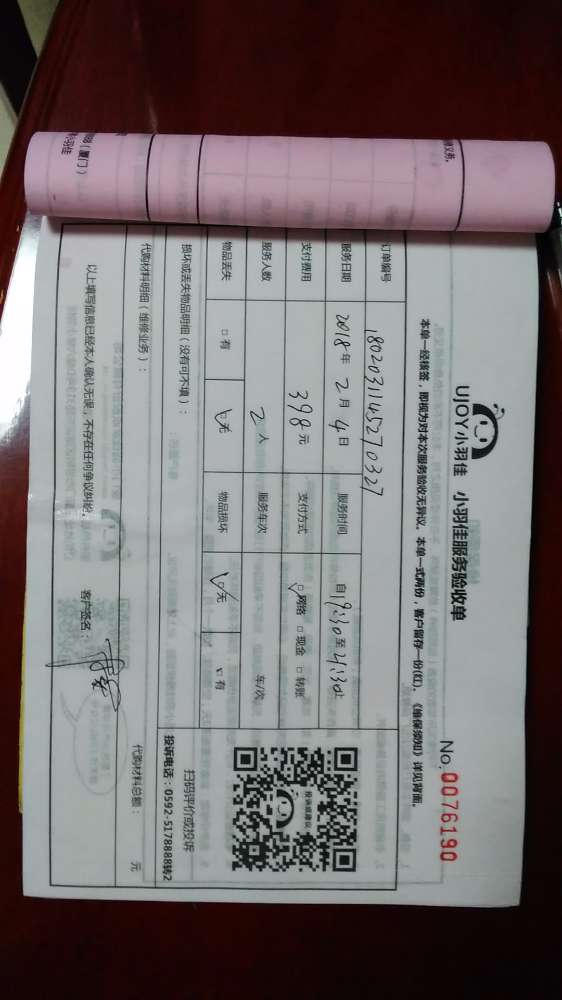 UJOY小羽佳 小羽佳服务验收单
No. 0076190
本单一经核签，即视为对本次服务验收无异议。本单一式两份，客户留存一份(红)。《维保须知》详见背面。
订单编号 180203114527 0327
服务日期 2018年2月4日 服务时间 自19:30至21:30止
支付费用 398元 支付方式 ☑网络 □现金 □转账
服务人数 2人 服务车次 车/次
物品丢失 □有 ☑无 物品损坏 ☑无 □有
损坏或丢失物品明细（没有可不填）：
代购材料明细（维修业务）：
代购材料总额： 元
以上填写信息已经本人确认无误，不存在任何争议纠纷。 客户签名：
投诉或建议
扫码评价或投诉
投诉电话：0592-5178888转2
（厦门）
小羽佳